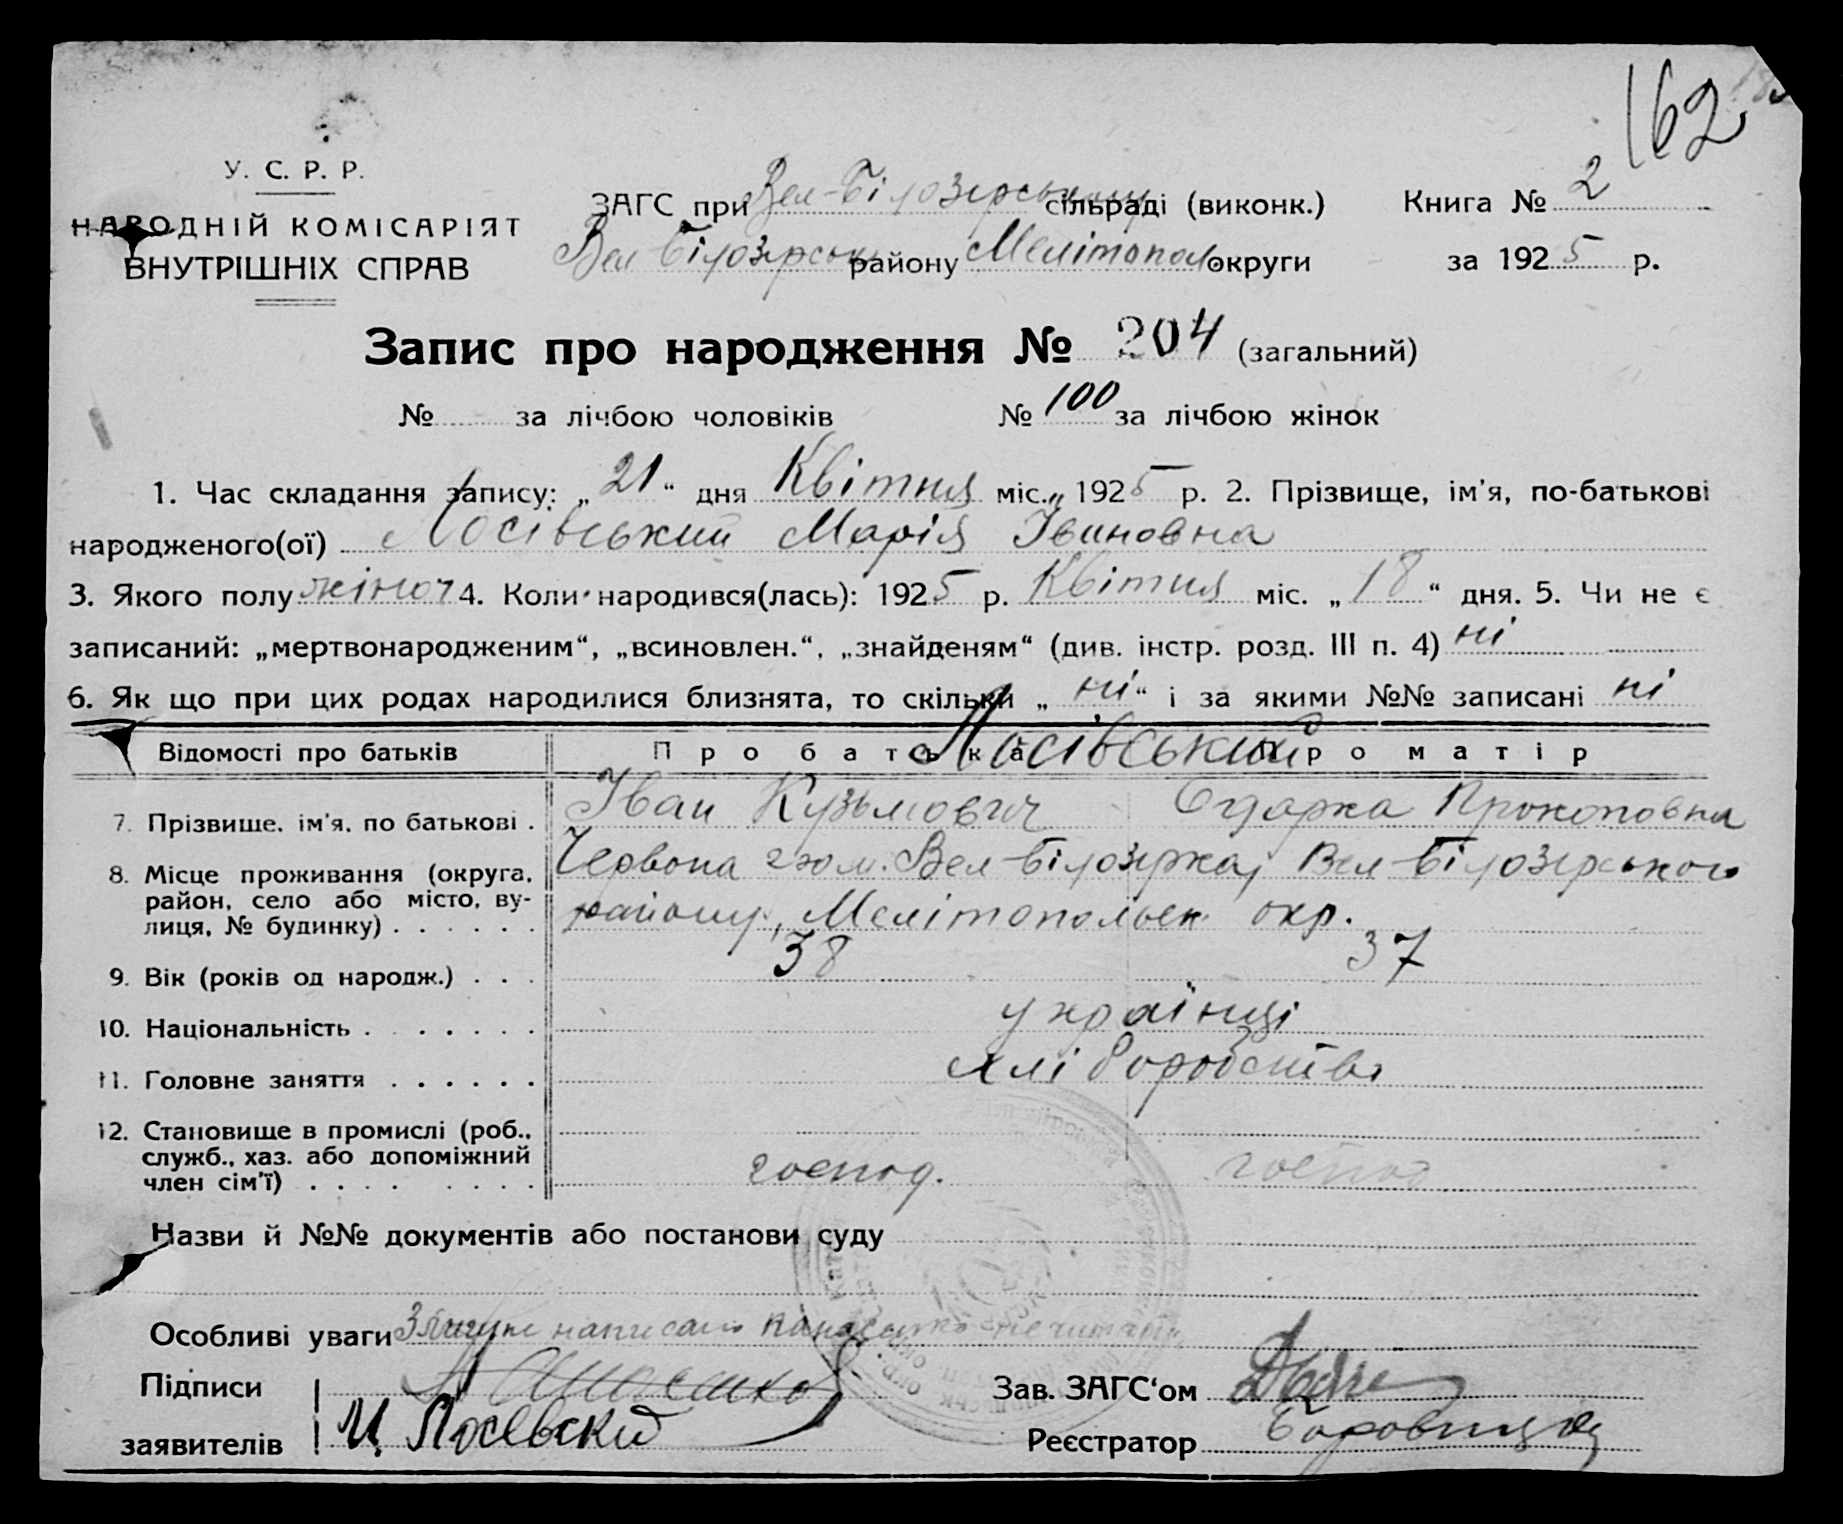 162
У. С. Р. Р.
НАРОДНІЙ КОМІСАРІЯТ
ВНУТРІШНІХ СПРАВ
ЗАГС при Вел-Білозерському сільраді (виконк.) Книга № 2
Вел Білозерськ району Мелітопол округи за 1925 р.
Запис про народження № 204 (загальний)
№ за лічбою чоловіків № 100 за лічбою жінок
1. Час складання запису: „21“ дня Квітня міс. 1925 р. 2. Прізвище, ім'я, по-батькові
народженого(ої) Лосівський Марія Івановна
3. Якого полу жіноч 4. Коли народився(лась): 1925 р. Квітня міс. „18“ дня. 5. Чи не є
записаний: „мертвонародженим“, „всиновлен.“, „знайденям“ (див. інстр. розд. III п. 4) ні
6. Як що при цих родах народилися близнята, то скільки „ні“ і за якими №№ записані ні
Відомості про батьків Про батька Про матір
Лосівський
7. Прізвище, ім'я, по батькові . Іван Кузьмович Одарка Прокоповна
8. Місце проживання (округа, Червона гром. Вел-Білозерка, Вел-Білозерського
район, село або місто, ву- району, Мелітопольськ окр.
лиця, № будинку) . . . . . .
9. Вік (років од народж.) . . . 38 37
10. Національність . . . . . . . українці
11. Головне заняття . . . . . . хліборобство
12. Становище в промислі (роб.,
служб., хаз. або допоміжний господ. господ
член сім'ї) . . . . . . . .
Назви й №№ документів або постанови суду
Особливі уваги написано
Підписи Зав. ЗАГС‘ом
заявителів И Лосевски Реєстратор